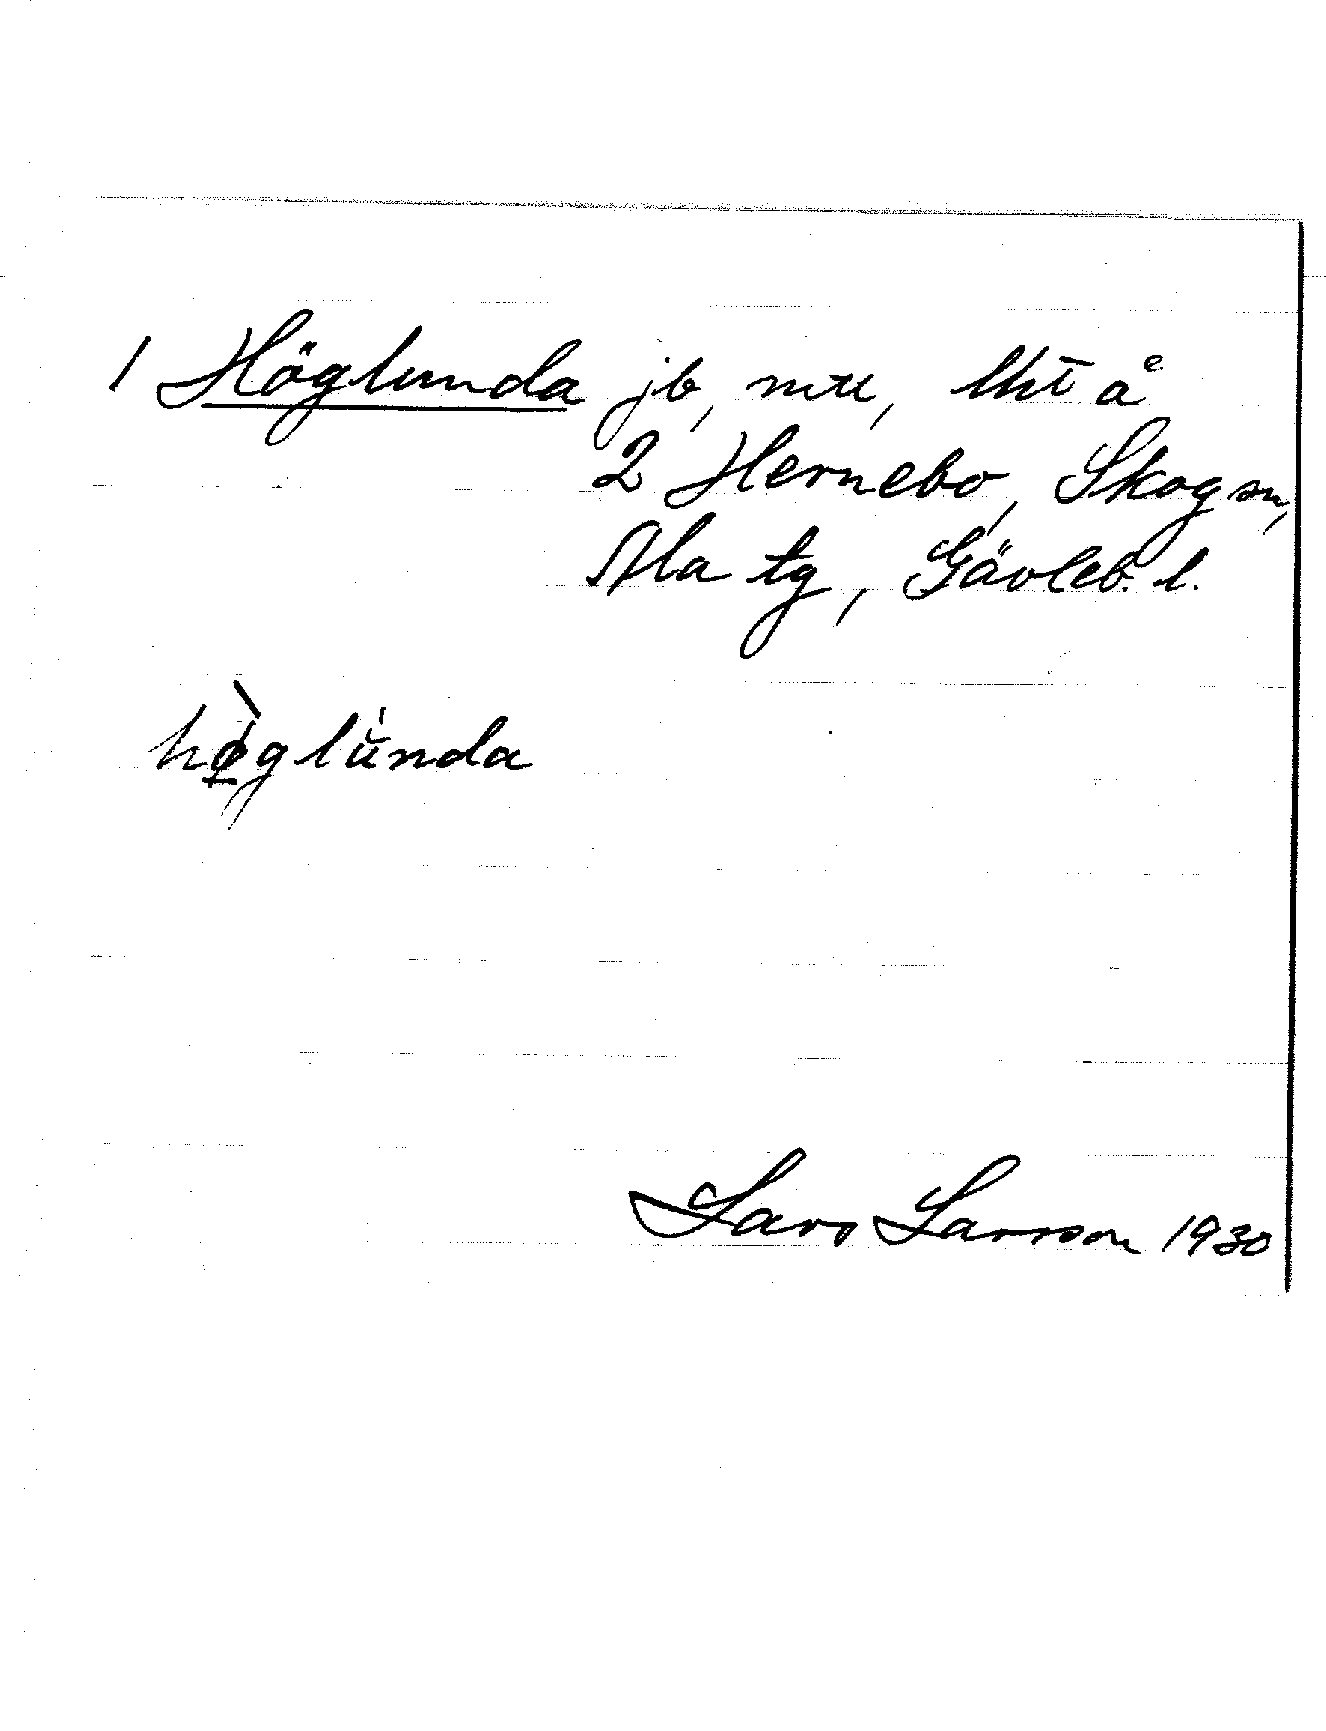 1 Höglunda jb, mtl, lht å
2 Hernebo, Skog sn,
Ala tg, Gävleb. l.
hø̀glùnda
Lars Larsson 1930